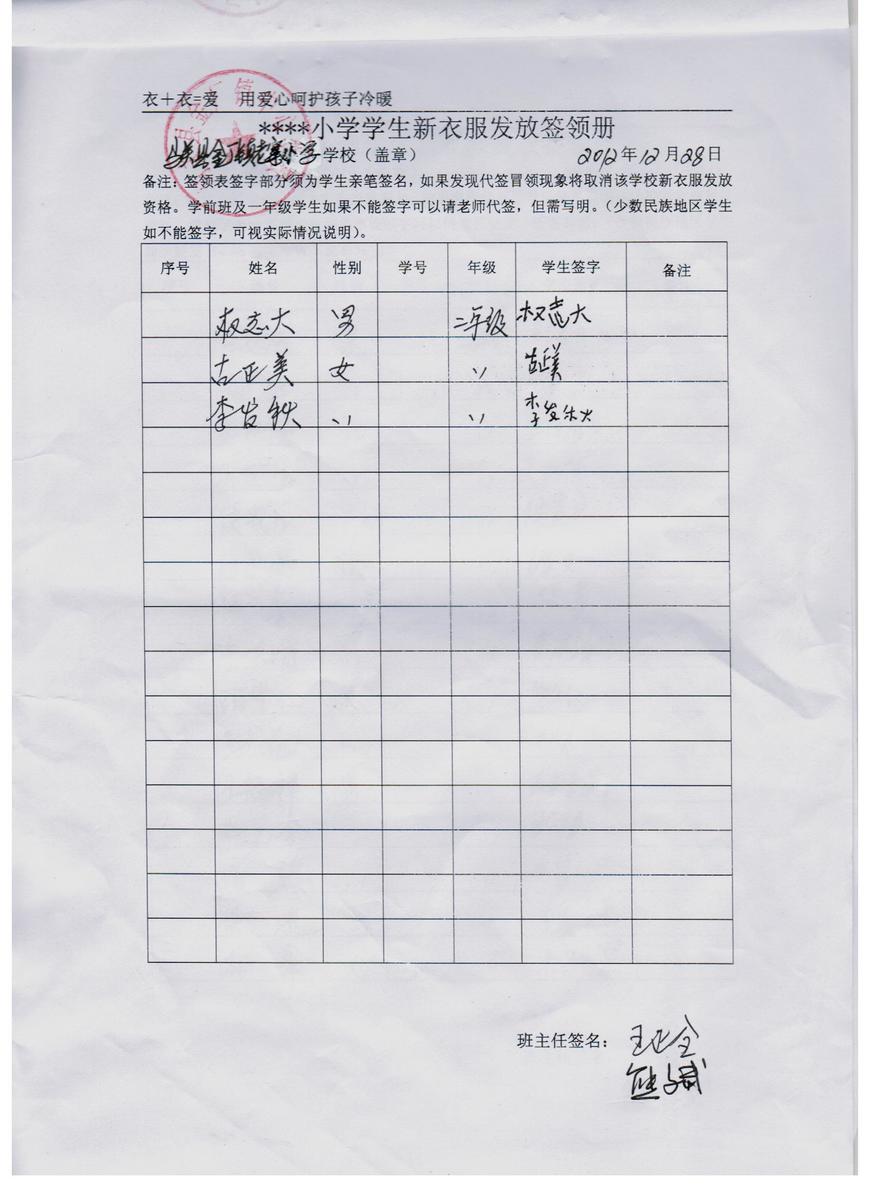 衣+衣=爱 用爱心呵护孩子冷暖
****小学学生新衣服发放签领册
小学学校（盖章） 2012年12月28日
备注：签领表签字部分须为学生亲笔签名，如果发现代签冒领现象将取消该学校新衣服发放
资格。学前班及一年级学生如果不能签字可以请老师代签，但需写明。（少数民族地区学生
如不能签字，可视实际情况说明）。
序号 姓名 性别 学号 年级 学生签字 备注
权志大 男 二年级 权志大
古正美 女 〃 古正美
李发秋 〃 〃 李发秋
班主任签名： 王正全